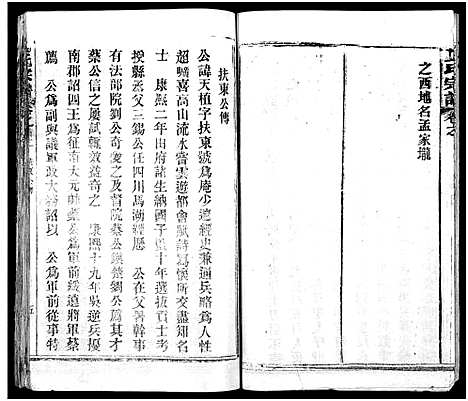 之酉地名孟家壠
扶東公傳
公諱天植字扶東號為庵少達經史兼通兵略為人性
超曠喜高山流水嘗雲遊都會賦詩寫懷所交盡知名
士　康熙二年由府諸生納國子監十年選拔貢士考
授縣丞父三錫公任四川馬湖經歷　公在父署幹事
有法部院劉公奇俊之及督院蔡公錄楚劉公為其才
蔡公信之屢試輒效益奇之　康熙十九年吳逆兵擾
南郡詔四王為征南大元帥蔡公為軍前綏遠將軍蔡
薦　公為副與議軍政大喜詔以　公為軍前從事特